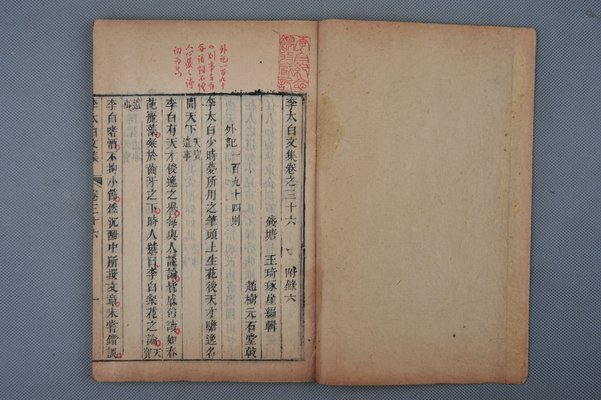 李太白文集卷之三十六 附錄六
錢塘 王琦琢崖編輯
趙樹元石堂較
外記一百九十四則
李太白少時夢所用之筆頭上生花後天才贍逸名
聞天下 天寶遺事
李白有天才俊逸之譽每與人談論皆成句讀如春
葩麗藻粲於齒牙之下時人號曰李白粲花之論 天寶
遺事
李白嗜酒不拘小節然沉酣中所撰文章未嘗錯誤
李太白文集 卷三十六 一
外記一百九十